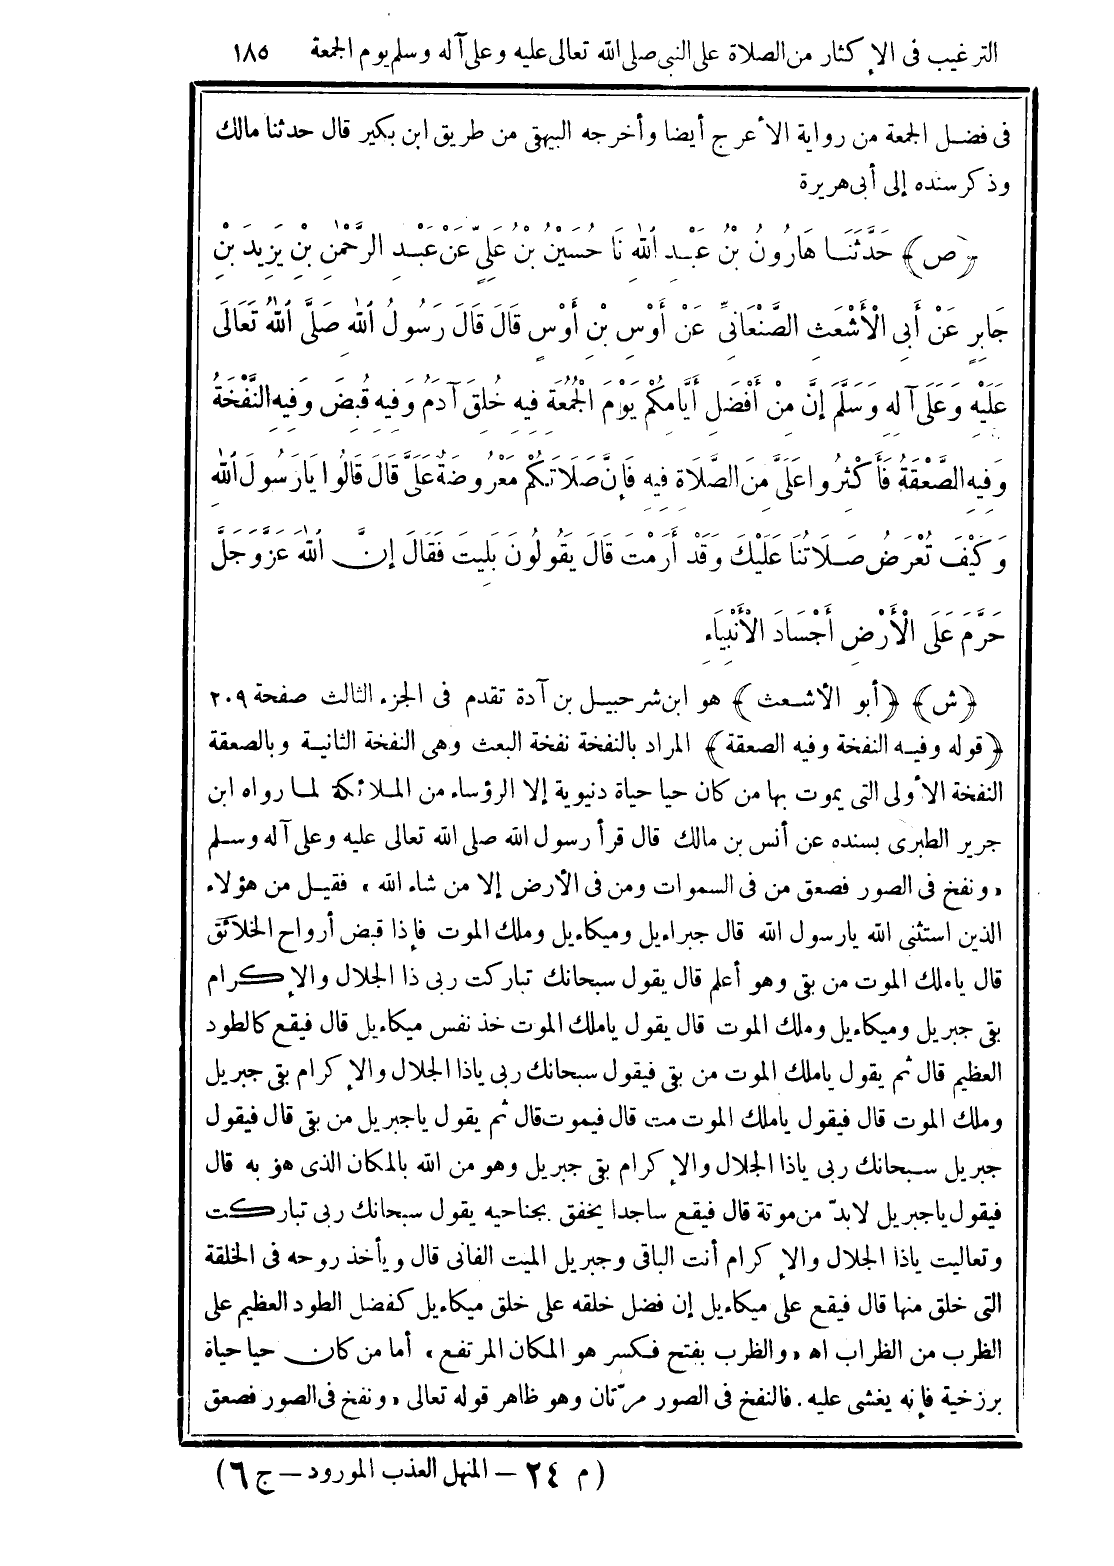 الترغيب فى الإكثار من الصلاة على النبى صلى الله تعالى عليه وعلى آله وسلم يوم الجمعة ١٨٥
فى فضل الجمعة من رواية الأعرج أيضا وأخرجه البيهقى من طريق ابن بكير قال حدثنا مالك
وذكر سنده إلى أبى هريرة
﴿ص﴾ حَدَّثَنَا هَارُونُ بْنُ عَبْدِ اللهِ نَا حُسَيْنُ بْنُ عَلِيٍّ عَنْ عَبْدِ الرَّحْمٰنِ بْنِ يَزِيدَ بْنِ
جَابِرٍ عَنْ أَبِى الْأَشْعَثِ الصَّنْعَانِىِّ عَنْ أَوْسِ بْنِ أَوْسٍ قَالَ قَالَ رَسُولُ اللهِ صَلَّى اللهُ تَعَالَى
عَلَيْهِ وَعَلَى آلِهِ وَسَلَّمَ إِنَّ مِنْ أَفْضَلِ أَيَّامِكُمْ يَوْمَ الْجُمُعَةِ فِيهِ خُلِقَ آدَمُ وَفِيهِ قُبِضَ وَفِيهِ النَّفْخَةُ
وَفِيهِ الصَّعْقَةُ فَأَكْثِرُوا عَلَىَّ مِنَ الصَّلَاةِ فِيهِ فَإِنَّ صَلَاتَكُمْ مَعْرُوضَةٌ عَلَىَّ قَالَ قَالُوا يَارَسُولَ اللهِ
وَكَيْفَ تُعْرَضُ صَلَاتُنَا عَلَيْكَ وَقَدْ أَرِمْتَ قَالَ يَقُولُونَ بَلِيتَ فَقَالَ إِنَّ اللهَ عَزَّ وَجَلَّ
حَرَّمَ عَلَى الْأَرْضِ أَجْسَادَ الْأَنْبِيَاءِ
﴿ش﴾ ﴿أبو الأشعث﴾ هو ابن شرحبيل بن آدة تقدم فى الجزء الثالث صفحة ٢٠٩
﴿قوله وفيه النفخة وفيه الصعقة﴾ المراد بالنفخة نفخة البعث وهى النفخة الثانية وبالصعقة
النفخة الأولى التى يموت بها من كان حيا حياة دنيوية إلا الرؤساء من الملائكة لما رواه ابن
جرير الطبرى بسنده عن أنس بن مالك قال قرأ رسول الله صلى الله تعالى عليه وعلى آله وسلم
«ونفخ فى الصور فصعق من فى السموات ومن فى الأرض إلا من شاء الله» فقيل من هؤلاء
الذين استثنى الله يارسول الله قال جبراءيل وميكاءيل وملك الموت فإذا قبض أرواح الخلائق
قال ياملك الموت من بقى وهو أعلم قال يقول سبحانك تباركت ربى ذا الجلال والإكرام
بقى جبريل وميكاءيل وملك الموت قال يقول ياملك الموت خذ نفس ميكاءيل قال فيقع كالطود
العظيم قال ثم يقول ياملك الموت من بقى فيقول سبحانك ربى ياذا الجلال والإكرام بقى جبريل
وملك الموت قال فيقول ياملك الموت مت قال فيموت قال ثم يقول ياجبريل من بقى قال فيقول
جبريل سبحانك ربى ياذا الجلال والإكرام بقى جبريل وهو من الله بالمكان الذى هو به قال
فيقول ياجبريل لابدّ من موتة قال فيقع ساجدا يخفق بجناحيه يقول سبحانك ربى تباركت
وتعاليت ياذا الجلال والإكرام أنت الباقى وجبريل الميت الفانى قال ويأخذ روحه فى الخلقة
التى خلق منها قال فيقع على ميكاءيل إن فضل خلقه على خلق ميكاءيل كفضل الطود العظيم على
الظرب من الظراب اه «والظرب بفتح فكسر هو المكان المرتفع» أما من كان حيا حياة
برزخية فإنه يغشى عليه. فالنفخ فى الصور مرّتان وهو ظاهر قوله تعالى «ونفخ فى الصور فصعق
(م ٢٤ – المنهل العذب المورود – ج ٦)